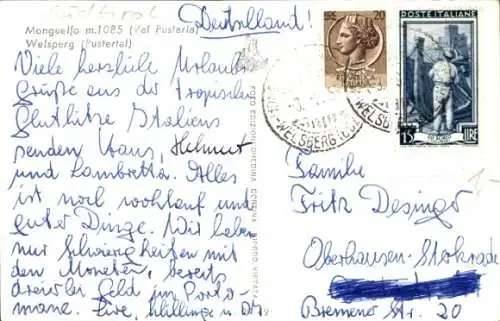 Südtirol
Deutschland!
Monguelfo m.1085 (Val Pusteria)
Welsberg (Pustertal)
Viele herzliche Urlaubs-
grüße aus der tropischen
Gluthitze Italiens
senden Haus, Helmut
und Lambretta. Alles
ist noch wohlauf und
guter Dinge. Wir haben
nur Schwierigkeiten mit
den Moneten, bereits
dreier Geld im Porto-
mane.
FOTO EDIZIONI GHEDINA CORTINA
20
REPUBBLICA
ITALIANA
POSTE ITALIANE
15 LIRE
WELSBERG
Familie
Fritz Desinger
Oberhausen-Sterkrade
Bremener Str. 20